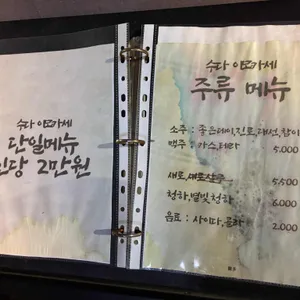 수라 이모카세
단일메뉴
인당 2만원
수라 이모카세
주류 메뉴
소주 : 좋은데이, 진로, 대선, 참이
맥주 : 카스, 테라 5,000
새로, 새로살구 5,500
청하, 별빛청하 6,000
음료 : 사이다, 콜라 2,000